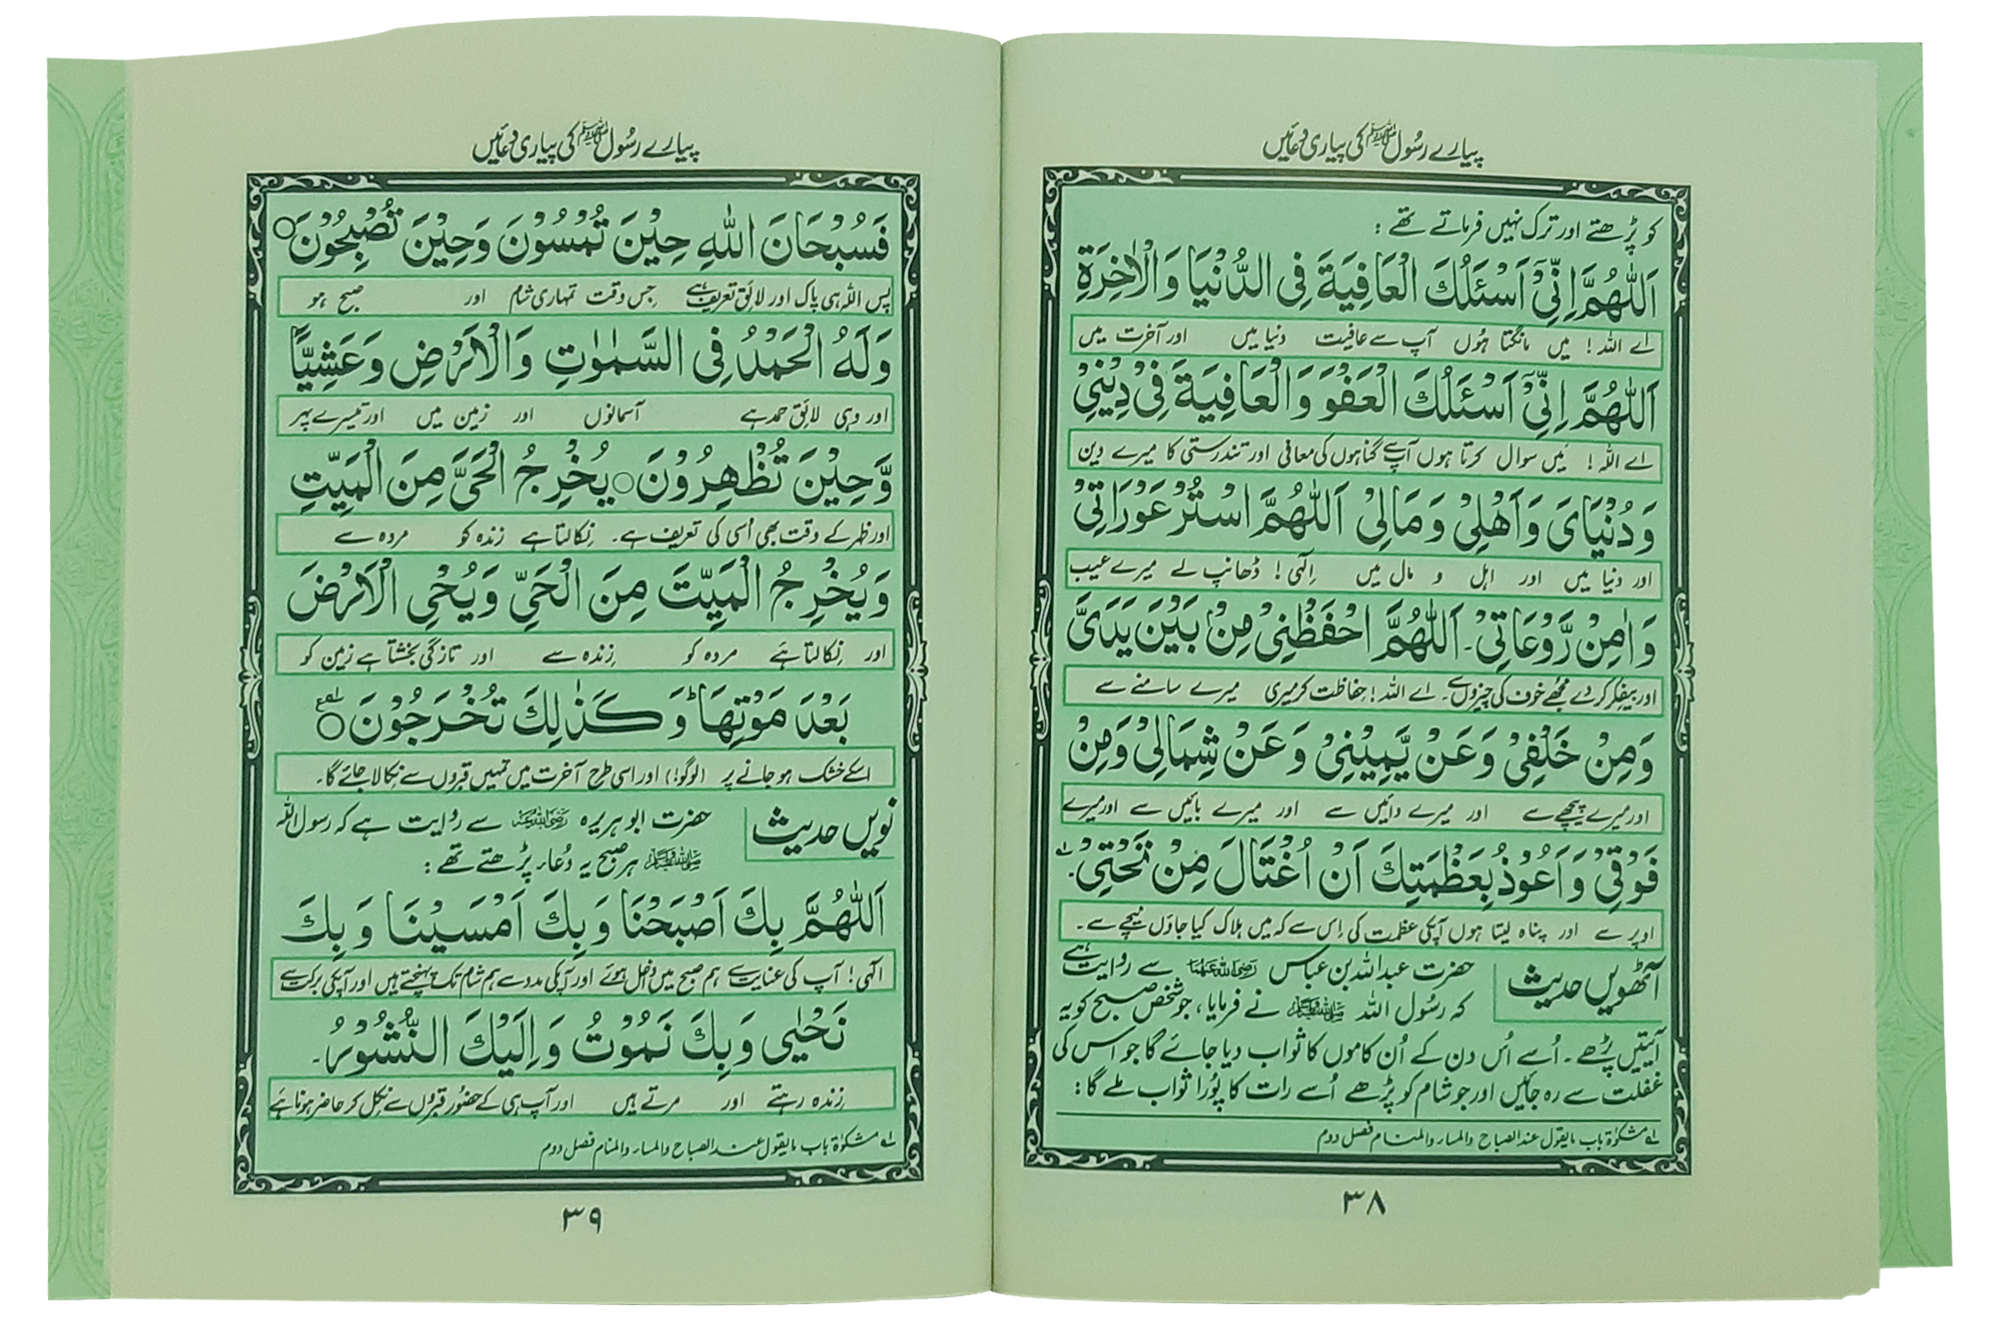 پیارے رسُول ﷺ کی پیاری دعائیں
کو پڑھتے اور ترک نہیں فرماتے تھے :
اَللّٰهُمَّ اِنِّیْۤ اَسْئَلُكَ الْعَافِيَةَ فِی الدُّنْيَا وَالْاٰخِرَةِ
اے اللہ! میں مانگتا ہُوں آپ سے عافیت دنیا میں اور آخرت میں
اَللّٰهُمَّ اِنِّیْۤ اَسْئَلُكَ الْعَفْوَ وَالْعَافِيَةَ فِیْ دِيْنِیْ
اے اللہ! میں سوال کرتا ہوں آپ سے گناہوں کی معافی اور تندرستی کا میرے دین
وَدُنْيَایَ وَاَهْلِیْ وَمَالِیْ اَللّٰهُمَّ اسْتُرْ عَوْرَاتِیْ
اور دنیا میں اور اہل و مال میں اِلٰہی! ڈھانپ لے میرے عیب
وَاٰمِنْ رَّوْعَاتِیْ۔ اَللّٰهُمَّ احْفَظْنِیْ مِنْۢ بَيْنِ يَدَیَّ
اور بیفکر کر دے مجھے خوف کی چیزوں سے۔ اے اللہ! حفاظت کر میری میرے سامنے سے
وَمِنْ خَلْفِیْ وَعَنْ يَّمِيْنِیْ وَعَنْ شِمَالِیْ وَمِنْ
اور میرے پیچھے سے اور میرے دائیں سے اور میرے بائیں سے اور میرے
فَوْقِیْ وَاَعُوْذُ بِعَظْمَتِكَ اَنْ اُغْتَالَ مِنْ تَحْتِیْ۔ لہ
اوپر سے اور پناہ لیتا ہوں آپکی عظمت کی اِس سے کہ میں ہلاک کیا جاؤں نیچے سے۔
آٹھویں حدیث حضرت عبداللہ بن عباس رضی اللہ عنہما سے روایت ہے
کہ رسُول اللہ ﷺ نے فرمایا، جو شخص صبح کو یہ
آیتیں پڑھے۔ اُسے اُس دن کے اُن کاموں کا ثواب دیا جائے گا جو اس کی
غفلت سے رہ جائیں اور جو شام کو پڑھے اُسے رات کا پُورا ثواب ملے گا :
لہ مشکوٰۃ باب مایقول عند الصباح والمساء والمنام فصل دوم
۳۸
پیارے رسُول ﷺ کی پیاری دعائیں
فَسُبْحَانَ اللّٰهِ حِيْنَ تُمْسُوْنَ وَحِيْنَ تُصْبِحُوْنَ○
پس اللہ ہی پاک اور لائق تعریف ہے جس وقت تمہاری شام اور صبح ہو
وَلَهُ الْحَمْدُ فِی السَّمٰوٰتِ وَالْاَرْضِ وَعَشِيًّا
اور وہی لائق حمد ہے آسمانوں اور زمین میں اور تیسرے پہر
وَّحِيْنَ تُظْهِرُوْنَ○ يُخْرِجُ الْحَیَّ مِنَ الْمَيِّتِ
اور ظہر کے وقت بھی اُسی کی تعریف ہے۔ نکالتا ہے زندہ کو مردہ سے
وَيُخْرِجُ الْمَيِّتَ مِنَ الْحَیِّ وَيُحْیِ الْاَرْضَ
اور نکالتا ہے مردہ کو زندہ سے اور تازگی بخشتا ہے زمین کو
بَعْدَ مَوْتِهَا ؕ وَكَذٰلِكَ تُخْرَجُوْنَ○
اسکے خشک ہو جانے پر (لوگو!) اور اسی طرح آخرت میں تمہیں قبروں سے نکالا جائے گا۔
نویں حدیث حضرت ابوہریرہ رضی اللہ عنہ سے روایت ہے کہ رسول اللہ
ﷺ ہر صبح یہ دُعاء پڑھتے تھے :
اَللّٰهُمَّ بِكَ اَصْبَحْنَا وَبِكَ اَمْسَيْنَا وَبِكَ
الٰہی! آپ کی عنایت سے ہم صبح میں داخل ہوئے اور آپکی مدد سے ہم شام تک پہنچتے ہیں اور آپکی برکت سے
نَحْيٰی وَبِكَ نَمُوْتُ وَاِلَيْكَ النُّشُوْرُ۔
زندہ رہتے اور مرتے ہیں اور آپ ہی کے حضور قبروں سے نکل کر حاضر ہونا ہے
لہ مشکوٰۃ باب مایقول عند الصباح والمساء والمنام فصل دوم
۳۹